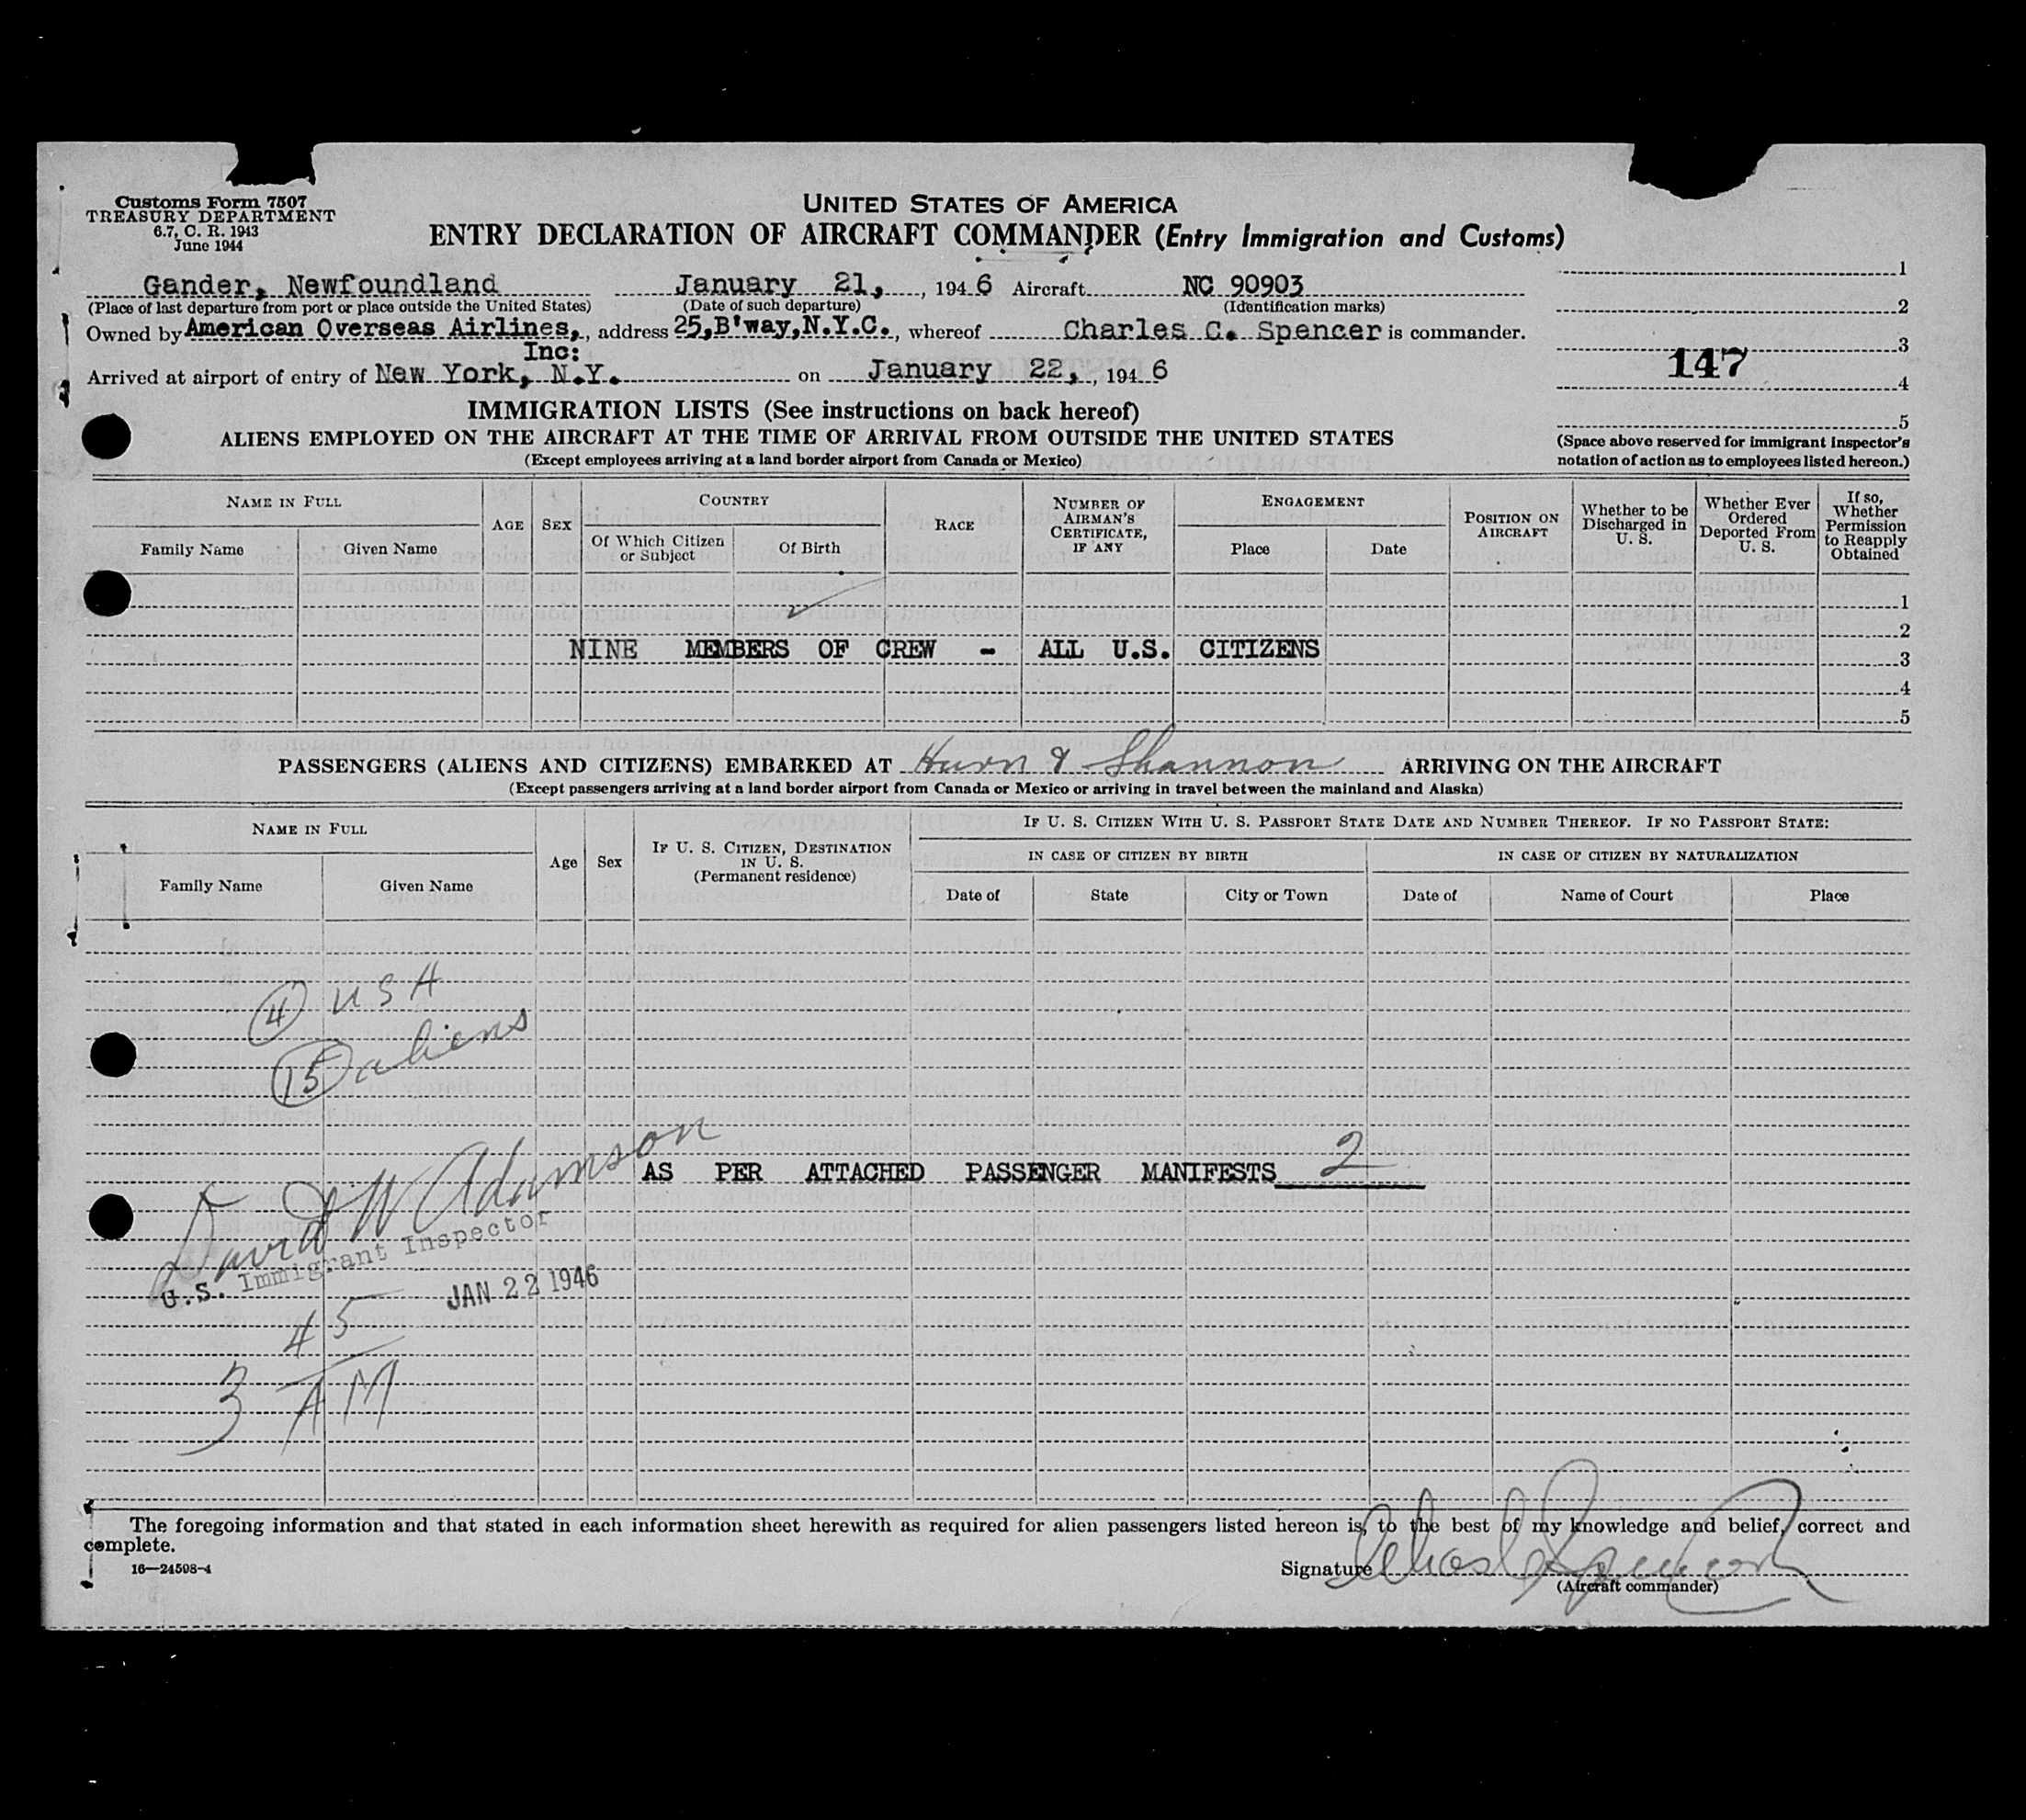 Customs Form 7507
TREASURY DEPARTMENT
6.7, C. R. 1943
June 1944
UNITED STATES OF AMERICA
ENTRY DECLARATION OF AIRCRAFT COMMANDER (Entry Immigration and Customs)
Gander, Newfoundland January 21, , 194 6 Aircraft NC 90903
(Place of last departure from port or place outside the United States) (Date of such departure) (Identification marks)
Owned by American Overseas Airlines, , address 25,B'way,N.Y.C. , whereof Charles C. Spencer is commander.
Inc:
Arrived at airport of entry of New York, N.Y. on January 22, , 194 6
1
2
3
147
4
5
(Space above reserved for immigrant inspector's
notation of action as to employees listed hereon.)
IMMIGRATION LISTS (See instructions on back hereof)
ALIENS EMPLOYED ON THE AIRCRAFT AT THE TIME OF ARRIVAL FROM OUTSIDE THE UNITED STATES
(Except employees arriving at a land border airport from Canada or Mexico)
NAME IN FULL
Family Name Given Name
AGE SEX
COUNTRY
Of Which Citizen or Subject Of Birth
RACE
NUMBER OF AIRMAN'S CERTIFICATE, IF ANY
ENGAGEMENT
Place Date
POSITION ON AIRCRAFT
Whether to be Discharged in U. S.
Whether Ever Ordered Deported From U. S.
If so, Whether Permission to Reapply Obtained
1
2
NINE MEMBERS OF CREW - ALL U.S. CITIZENS
3
4
5
PASSENGERS (ALIENS AND CITIZENS) EMBARKED AT Hurn & Shannon ARRIVING ON THE AIRCRAFT
(Except passengers arriving at a land border airport from Canada or Mexico or arriving in travel between the mainland and Alaska)
NAME IN FULL
Family Name Given Name
Age Sex
IF U. S. CITIZEN, DESTINATION
IN U. S.
(Permanent residence)
IF U. S. CITIZEN WITH U. S. PASSPORT STATE DATE AND NUMBER THEREOF. IF NO PASSPORT STATE:
IN CASE OF CITIZEN BY BIRTH IN CASE OF CITIZEN BY NATURALIZATION
Date of State City or Town Date of Name of Court Place
4 USA
15 aliens
AS PER ATTACHED PASSENGER MANIFESTS 2
David W Adamson
U.S. Immigrant Inspector
JAN 22 1946
3 45 AM
The foregoing information and that stated in each information sheet herewith as required for alien passengers listed hereon is, to the best of my knowledge and belief, correct and
complete.
16—24598-4
Signature Chas C Spencer
(Aircraft commander)